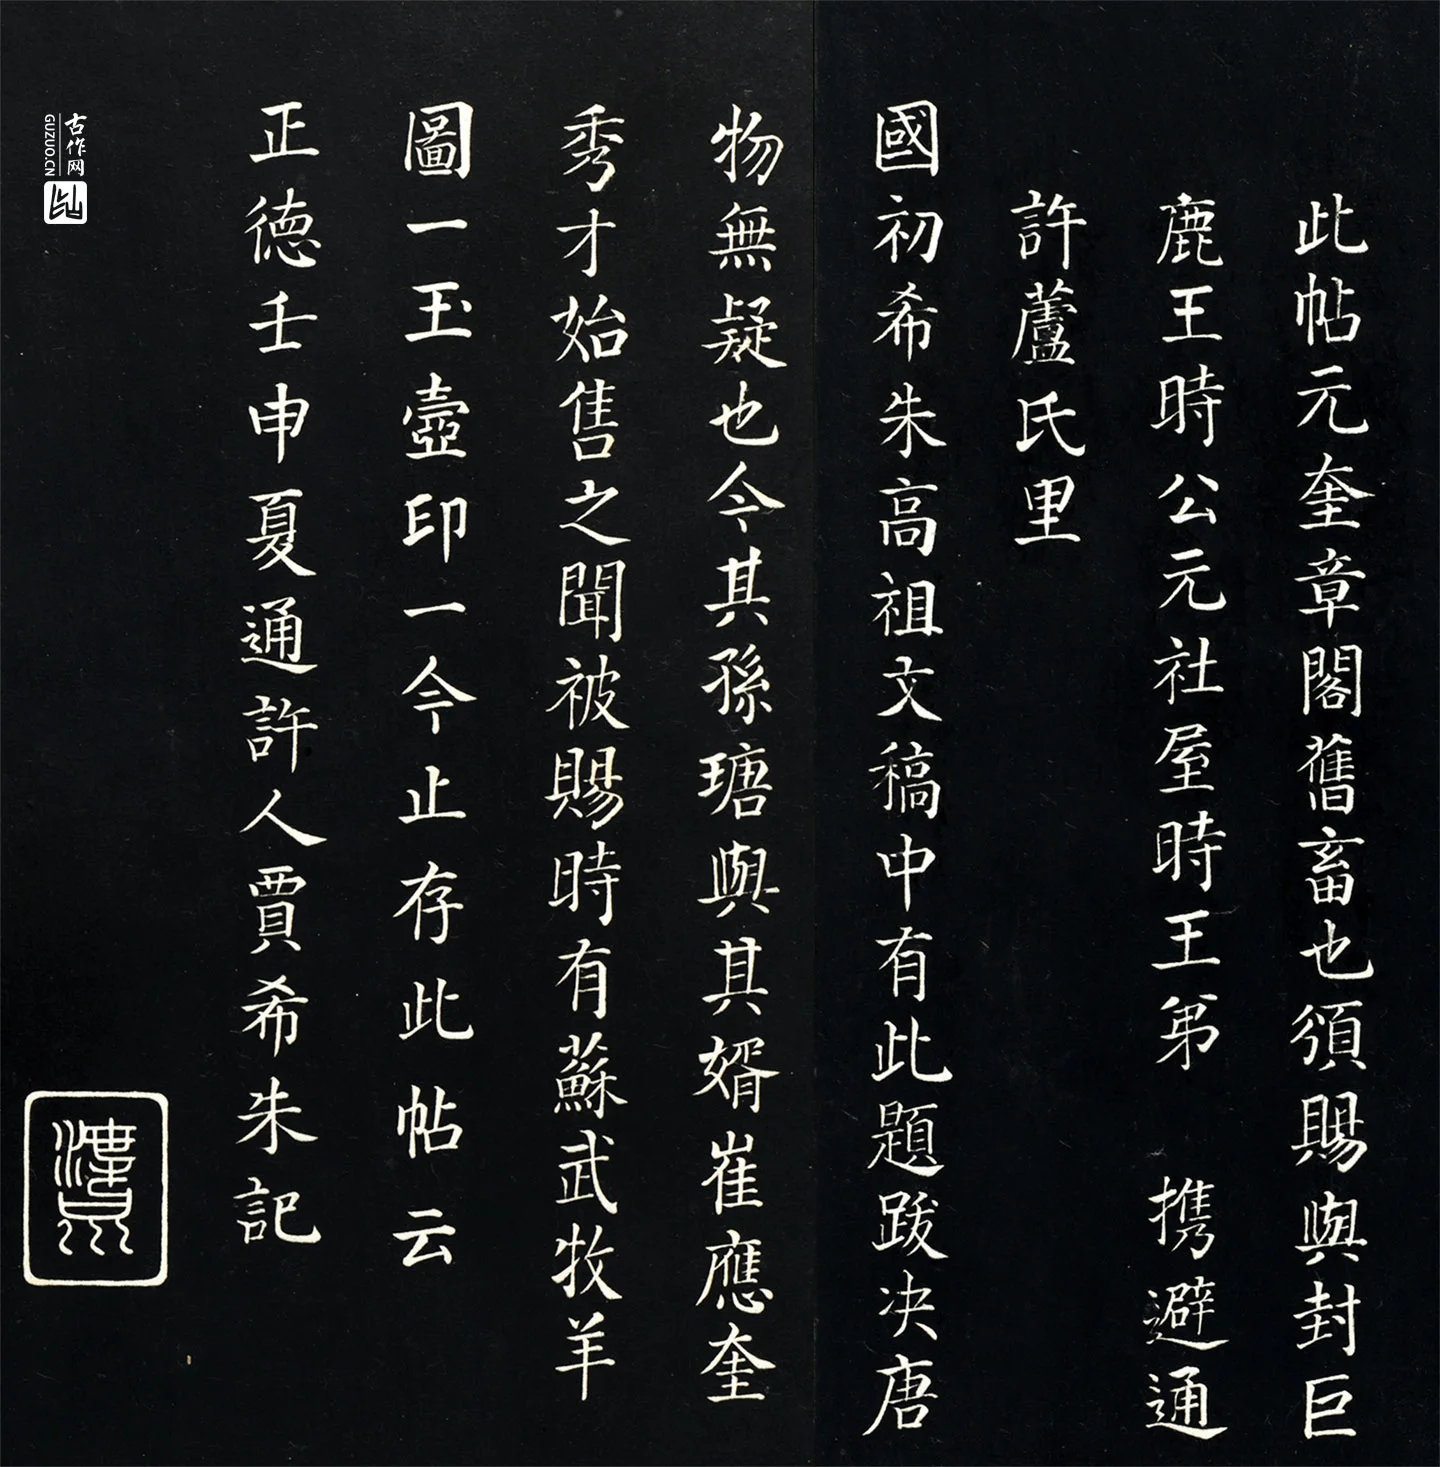 此帖元奎章閣舊畜也須賜與封巨
鹿王時公元社屋時王弟 携避通
許蘆氏里
國初希朱高祖文稿中有此題跋决唐
物無疑也今其孫瑭與其婿崔應奎
秀才始售之聞被賜時有蘇武牧羊
圖一玉壺印一今止存此帖云
正德壬申夏通許人賈希朱記
古作网
GUZUO.CN